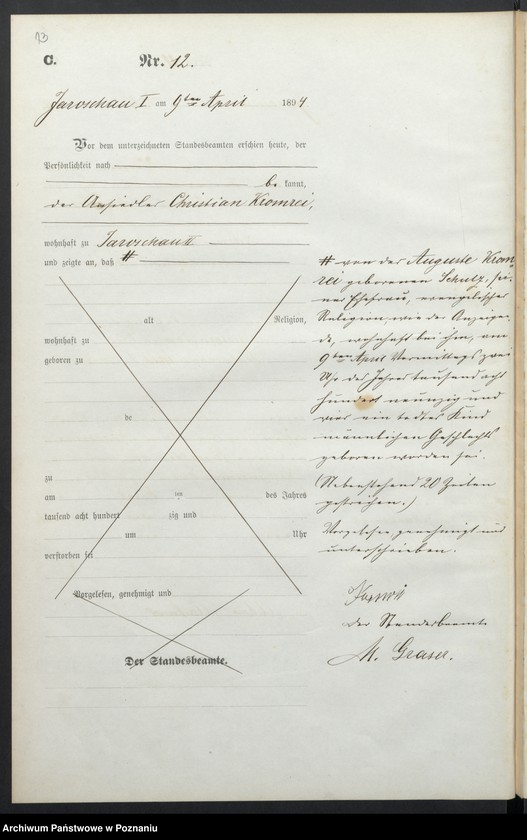 13
C.
Nr. 12.
Jaroschau I am 9ten April 1894
Vor dem unterzeichneten Standesbeamten erschien heute, der
Persönlichkeit nach
be kannt,
der Ansiedler Christian Kromrei,
wohnhaft zu Jaroschau II
und zeigte an, daß #
alt Religion,
wohnhaft zu
geboren zu
de
zu
am ten des Jahres
tausend acht hundert zig und
um Uhr
verstorben sei
Vorgelesen, genehmigt und
Der Standesbeamte.
# von der Auguste Krom
rei geborenen Schulz, sei-
ner Ehefrau, evangelischer
Religion, wie der Anzeigen-
de, wohnhaft bei ihm, am
9ten April Vormittags zwei
Uhr des Jahres tausend acht
hundert neunzig und
vier ein todtes Kind
männlichen Geschlechts
geboren worden sei.
(Nebenstehend 20 Zeilen
gestrichen.)
Vorgelesen, genehmigt und
unterschrieben.
Der Standesbeamte
M. Graser.
Archiwum Państwowe w Poznaniu